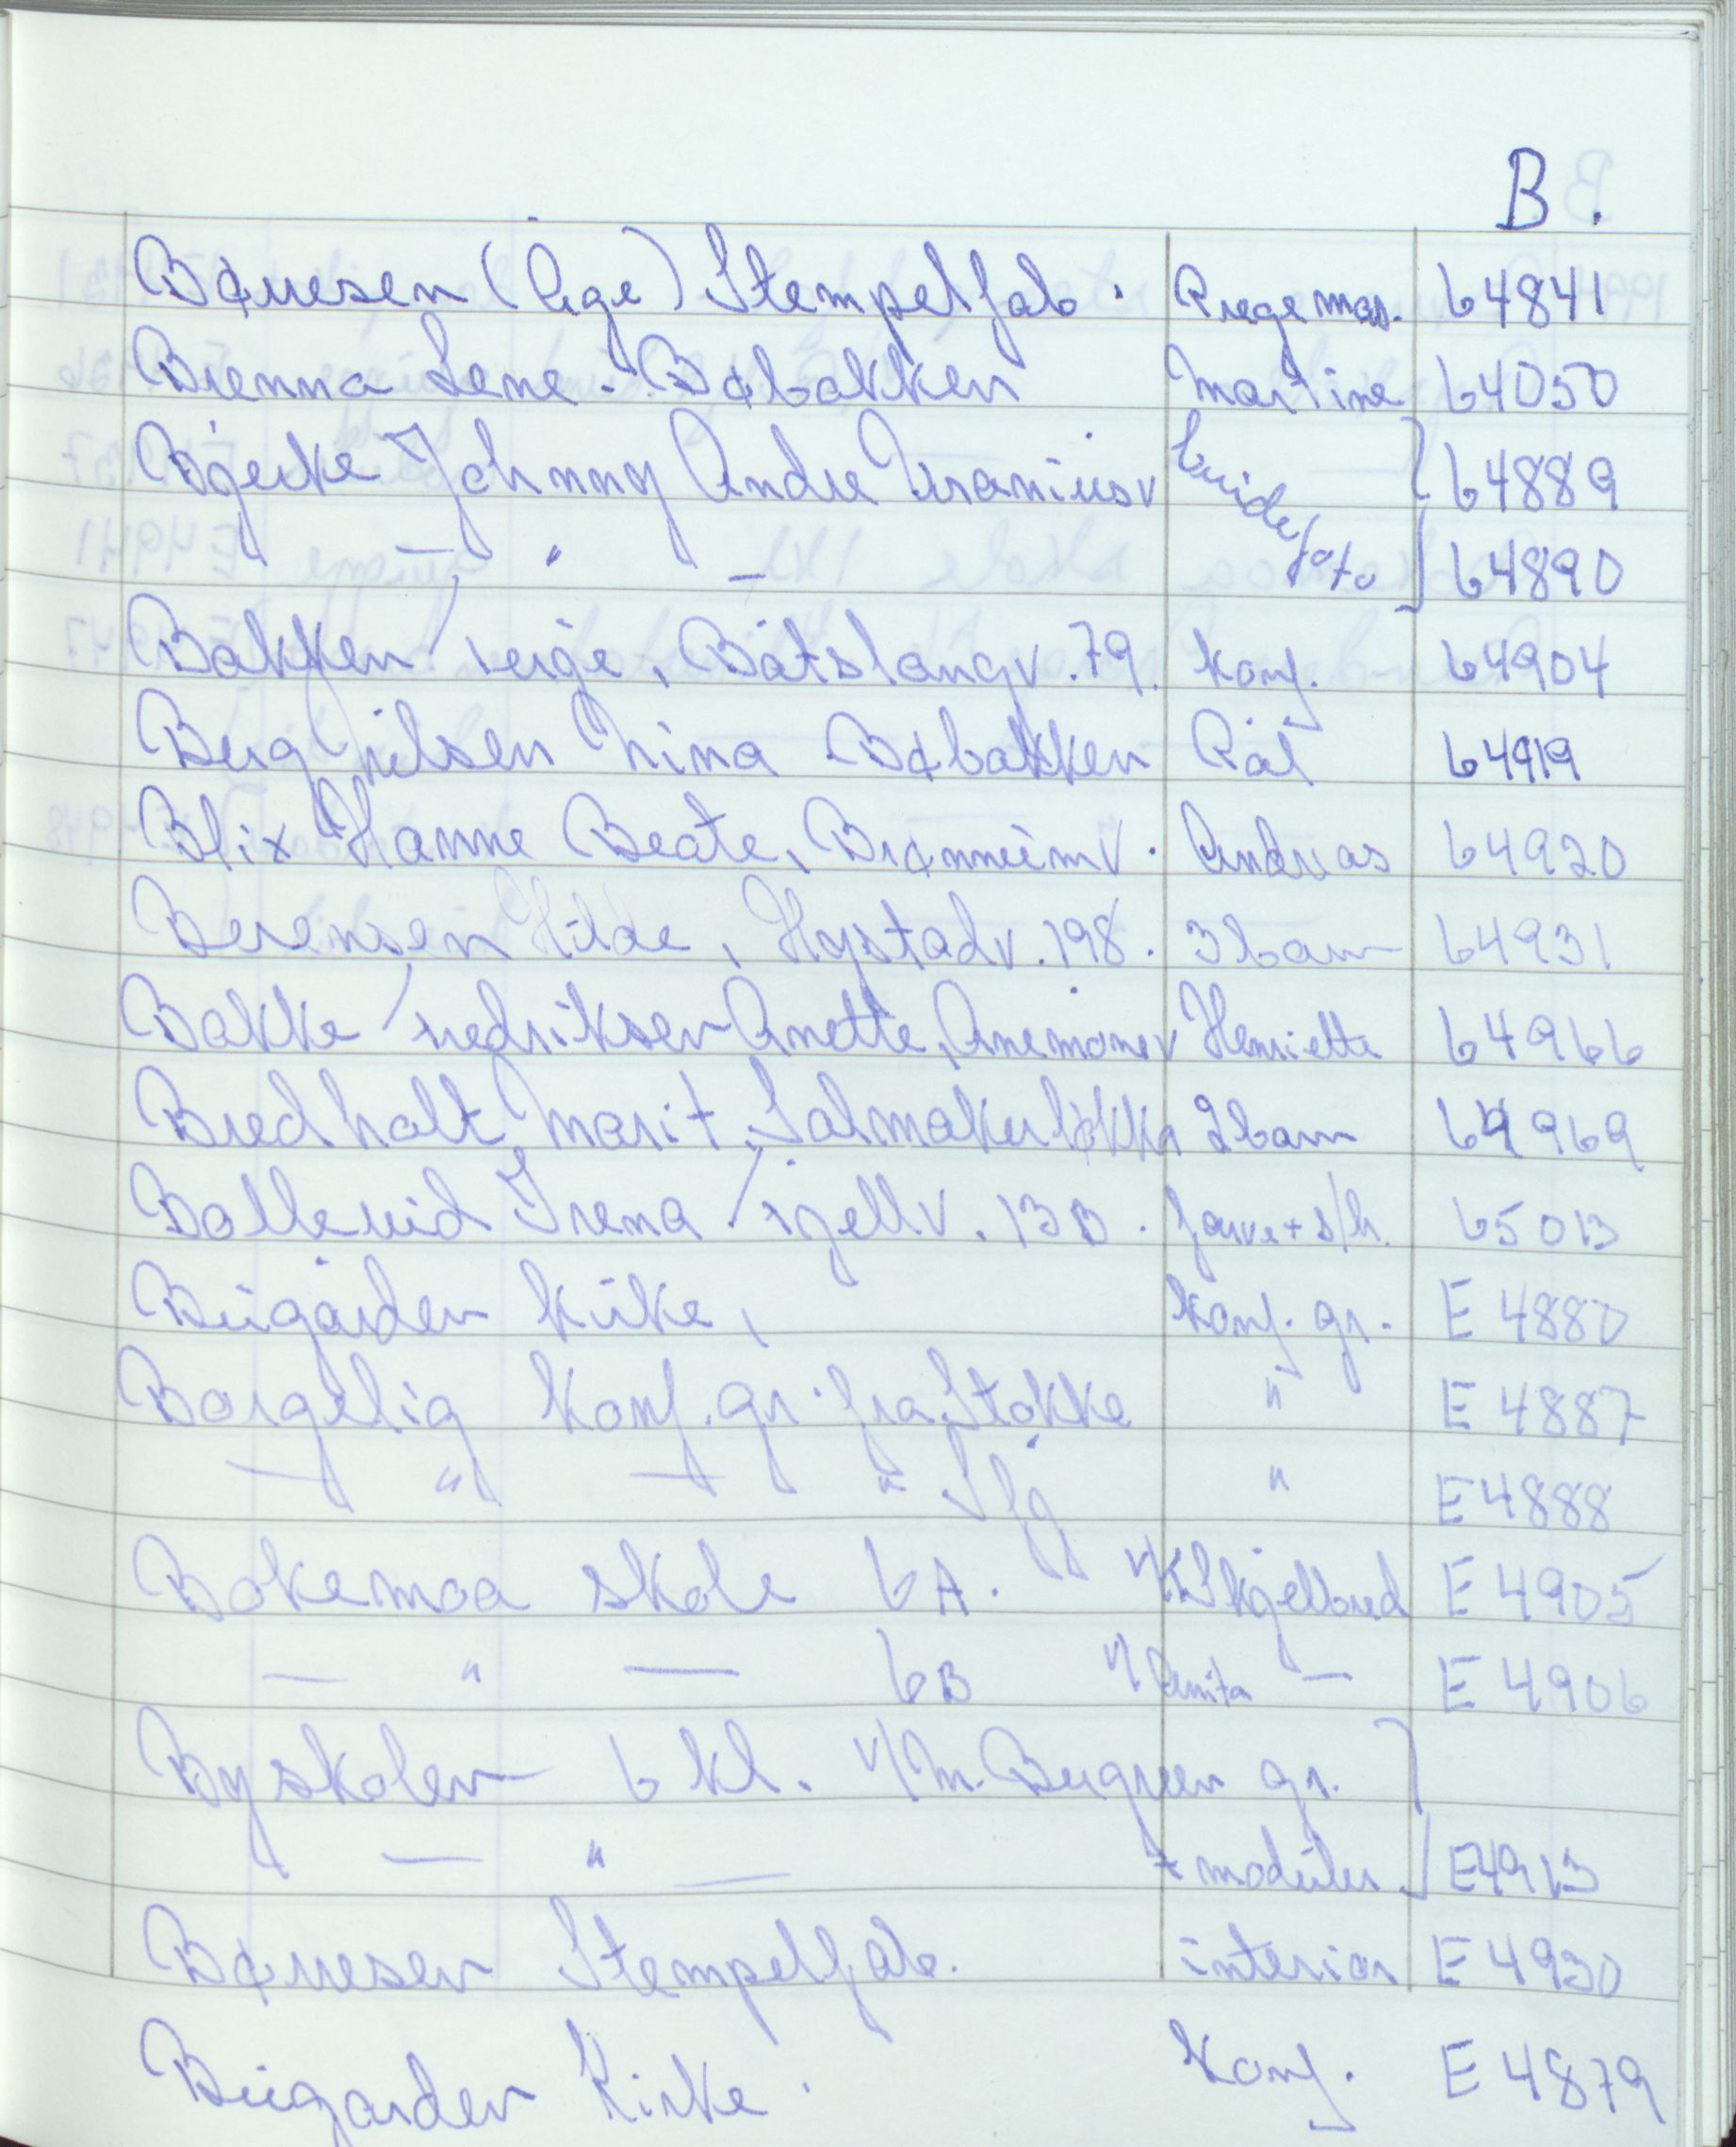 B.
Børresen (Aage) Stempelfab. Prege mas. 64841
Brenna Lene. Bøbakken Martine 64050
Bjerke Johnny Andre Uraniusv brudefoto 64889
— " — 64890
Bakken Terje, Båtslangv. 79. konf. 64904
Berg Nilsen Nina Bøbakken Pål 64919
Blix Hanne Beate, Brønneimv. Andreas 64920
Berentsen Hilde, Hystadv. 198. 3 barn 64931
Bakke Fredriksen Anette, Anemonev Henriette 64966
Bredholt Marit, Salmakerløkka 2 barn 64969
Bollevid Irena Fjellv. 13B. farve + s/h. 65013
Bugården kirke, konf. gr. E 4880
Borgelig konf. gr. fra Stokke " E 4887
— " — " Sfj " E 4888
Bokemoa skole 6A. v/K. Skjelbred E 4905
— " — 6B v/Anita — E 4906
Byskolen 6 kl. v/M. Bergren gr.
— " — + moduler E4913
Børresen Stempelfab. interiør E 4930
Bugarden Kirke. konf. E 4879